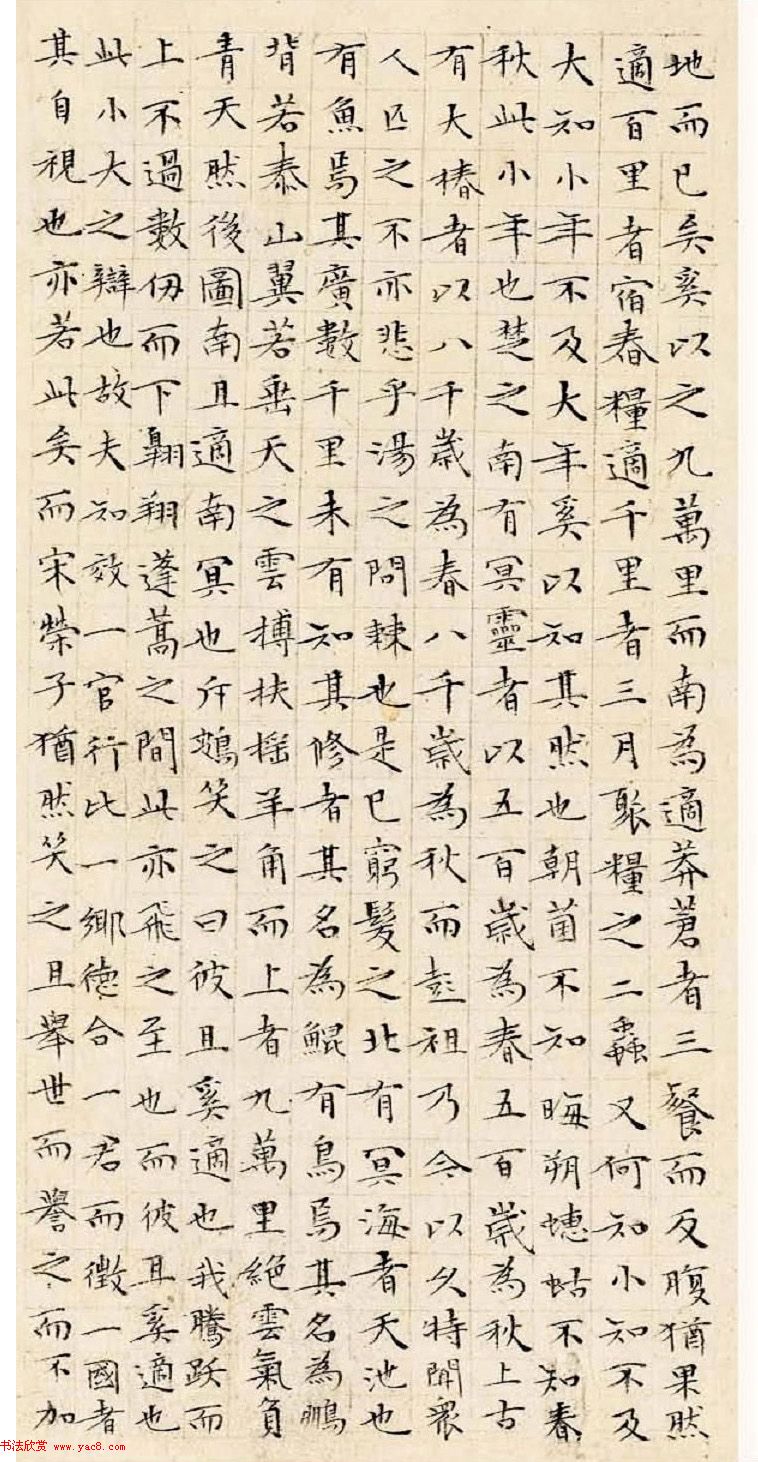 地而已矣奚以之九萬里而南為適莽蒼者三餐而反腹猶果然
適百里者宿舂糧適千里者三月聚糧之二蟲又何知小知不及
大知小年不及大年奚以知其然也朝菌不知晦朔蟪蛄不知春
秋此小年也楚之南有冥靈者以五百歲為春五百歲為秋上古
有大椿者以八千歲為春八千歲為秋而彭祖乃今以久特聞衆
人匹之不亦悲乎湯之問棘也是已窮髮之北有冥海者天池也
有魚焉其廣數千里未有知其修者其名為鯤有鳥焉其名為鵬
背若泰山翼若垂天之雲摶扶搖羊角而上者九萬里絕雲氣負
青天然後圖南且適南冥也斥鴳笑之曰彼且奚適也我騰跃而
上不過數仞而下翱翔蓬蒿之間此亦飛之至也而彼且奚適也
此小大之辯也故夫知效一官行比一鄉德合一君而徵一國者
其自視也亦若此矣而宋榮子猶然笑之且舉世而譽之而不加
书法欣赏 www.yac8.com